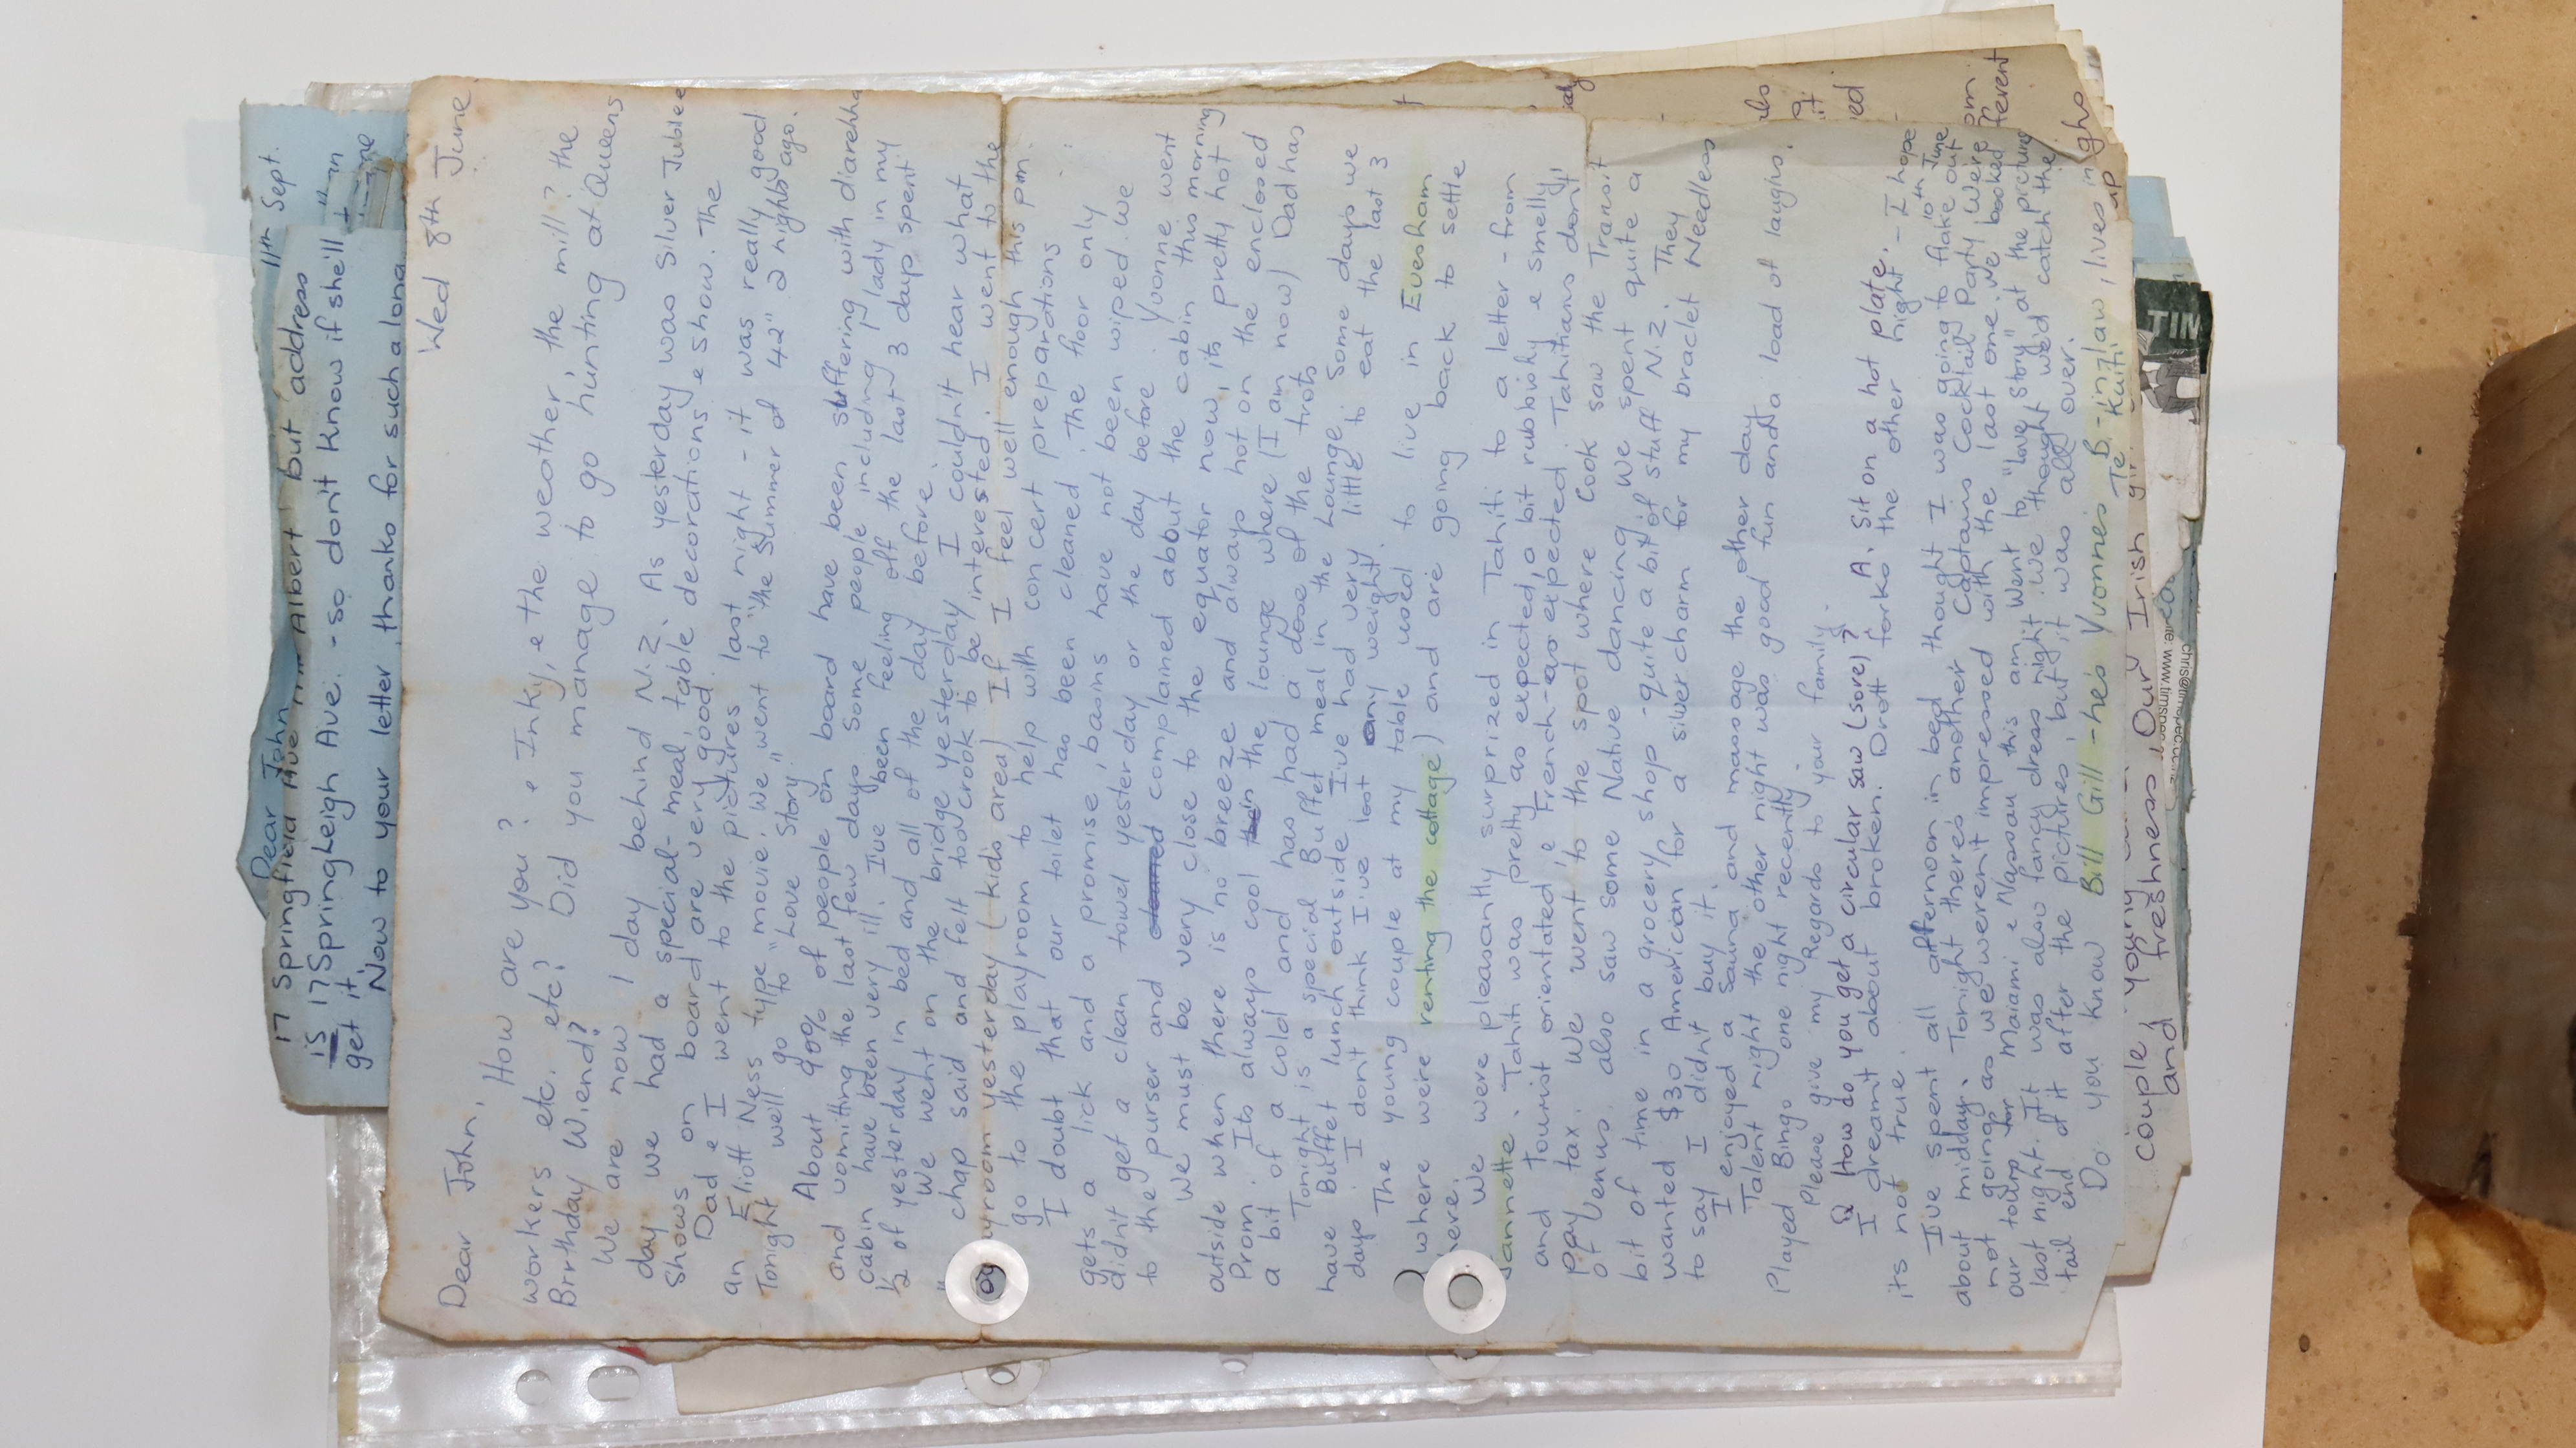 11th Sept.
Dear John
17 Springfield Ave Albert but address
is 17 Springleigh Ave. - so don't know if she'll
get it.
Now to your letter, thanks for such a long
Wed 8th June
Dear John,
How are you? & Inky, & the weather, the mill? the
workers etc. etc? Did you manage to go hunting at Queens
Birthday W/end?
We are now 1 day behind N.Z. As yesterday was Silver Jubilee
day we had a special- meal, table decorations & show. The
Shows on board are very good.
Dad & I went to the pictures last night - it was really good
an Eliott Ness type "movie". We "went to "the Summer of 42" 2 nights ago.
Tonight we'll go to "Love Story"
About 90% of people on board have been suffering with diarehha
and vomiting the last few days. Some people including 1 lady in my
cabin have been very ill. I've been feeling off the last 3 days spent
½ of yesterday in bed and all of the day before.
We went on the bridge yesterday I couldn't hear what
chap said and felt too crook to be interested. I went to the
playroom yesterday (kids area) If I feel well enough this pm.
go to the playroom to help with concert preparations
I doubt that our toilet has been cleaned. The floor only
gets a lick and a promise, basins have not been wiped. We
didn't get a clean towel yesterday or the day before. Yvonne went
to the purser and cleaned complained about the cabin this morning
We must be very close to the equator now, its pretty hot
outside when there is no breeze and always hot on the enclosed
Prom. Its always cool in the lounge where (I am now) Dad has
a bit of a cold and has had a dose of the trots
Tonight is a special Buffet meal in the Lounge. Some days we
have Buffet lunch outside I've had very little to eat the last 3
days. I don't think I've lost any weight.
The young couple at my table used to live in Evesham
where were renting the cottage) and are going back to settle
here.
We were pleasantly surprized in Tahiti to a letter - from
Jannette. Tahiti was pretty as expected, a bit rubbishy & smelly
and tourist orientated, & French - as expected. Tahitians don't
pay tax. We went to the spot where Cook saw the Transit
of Venus. also saw some Native dancing. We spent quite a
bit of time in a grocery shop - quite a bit of stuff N.Z. They
wanted $30 American for a silver charm for my braclet Needless
to say I didn't buy it.
I enjoyed a Sauna and massage the other day
Talent night the other night was good fun and a load of laughs.
Played Bingo one night recently
Please give my Regards to your family.
Q How do you get a circular saw (sore)? A. Sit on a hot plate.
I dreamt about broken Drott forks the other night - I hope
its not true.
10th June
I've spent all afternoon in bed thought I was going to flake out
about midday. Tonight theres another Captains Cocktail Party. Were
not going as we werent impressed with the last one. We booked
our tours for Maiami & Nassau this am. Went to "Love Story" at the pictures
last night. It was also fancy dress night we thought we'd catch the
tail end of it after the pictures, but it was all over.
Do you know Bill Gill - he's Yvonne's B-in-law, lives in
Te Kuiti
couple young
and freshness, Our Irish